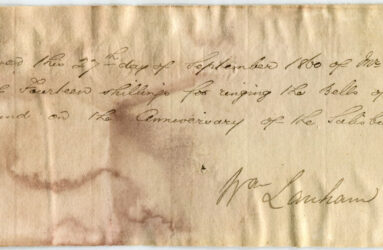 ved this 27th day of September 1860 of Mr
Fourteen shillings for ringing the Bells of
und on the Anniversary of the Salisb
Wm Lanham